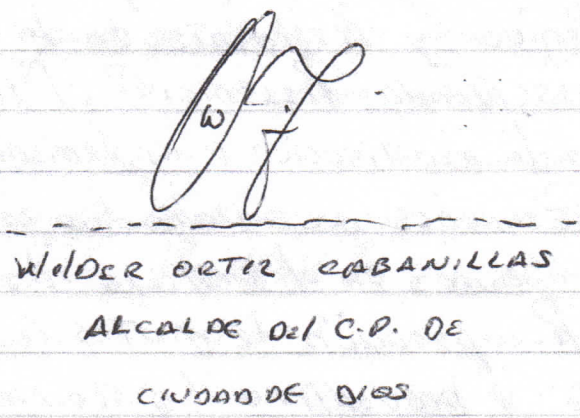 WilDER ORTIZ CABANILLAS
ALCALDE Del C.P. DE
CIUDAD DE DIOS